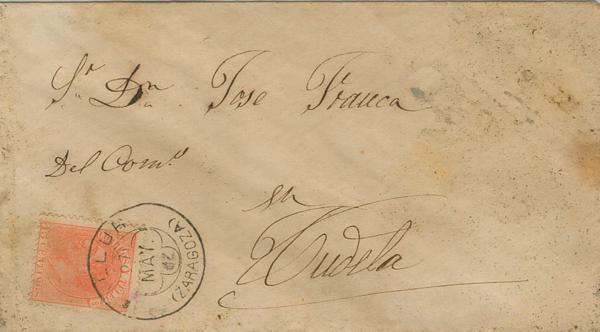 Sr. Dn. Jose Franca
Del Como.
en
Tudela
MAY
(ZARAGOZA)